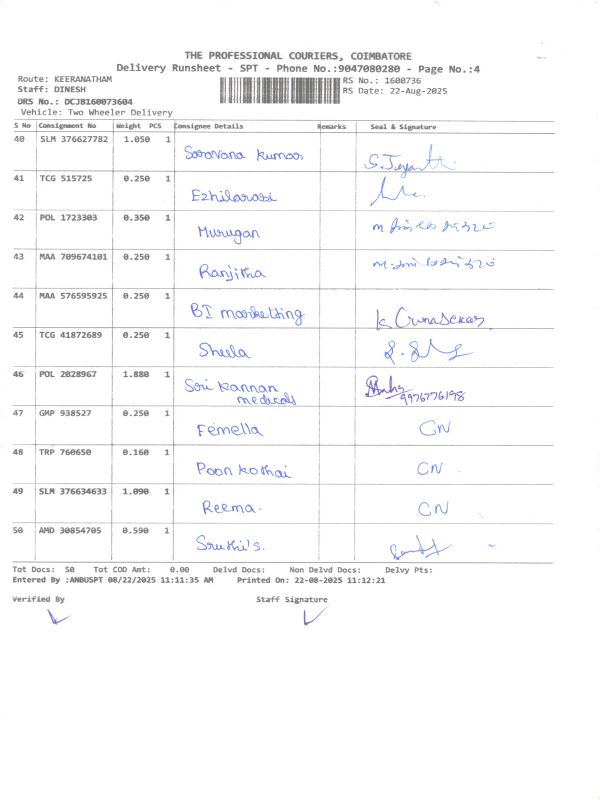 THE PROFESSIONAL COURIERS, COIMBATORE
Delivery Runsheet - SPT - Phone No.:9047080280 - Page No.:4
Route: KEERANATHAM RS No.: 1600736
Staff: DINESH RS Date: 22-Aug-2025
DRS No.: DCJB160073604
Vehicle: Two Wheeler Delivery
S No Consignment No Weight PCS Consignee Details Remarks Seal & Signature
40 SLM 376627782 1.050 1 Saravana Kumar
41 TCG 515725 0.250 1 Ezhilarasi
42 POL 1723303 0.350 1 Murugan
43 MAA 709674101 0.250 1 Ranjitha
44 MAA 576595925 0.250 1 BI marketting K Gunasekar
45 TCG 41872689 0.250 1 Sheela
46 POL 2028967 1.880 1 Sri Kannan
medicals 9976776198
47 GMP 938527 0.250 1 Femella CN
48 TRP 760650 0.160 1 Poon kothai CN
49 SLM 376634633 1.090 1 Reema. CN
50 AMD 30854705 0.590 1 Sruthi's.
Tot Docs: 50 Tot COD Amt: 0.00 Delvd Docs: Non Delvd Docs: Delvy Pts:
Entered By :ANBUSPT 08/22/2025 11:11:35 AM Printed On: 22-08-2025 11:12:21
Verified By Staff Signature